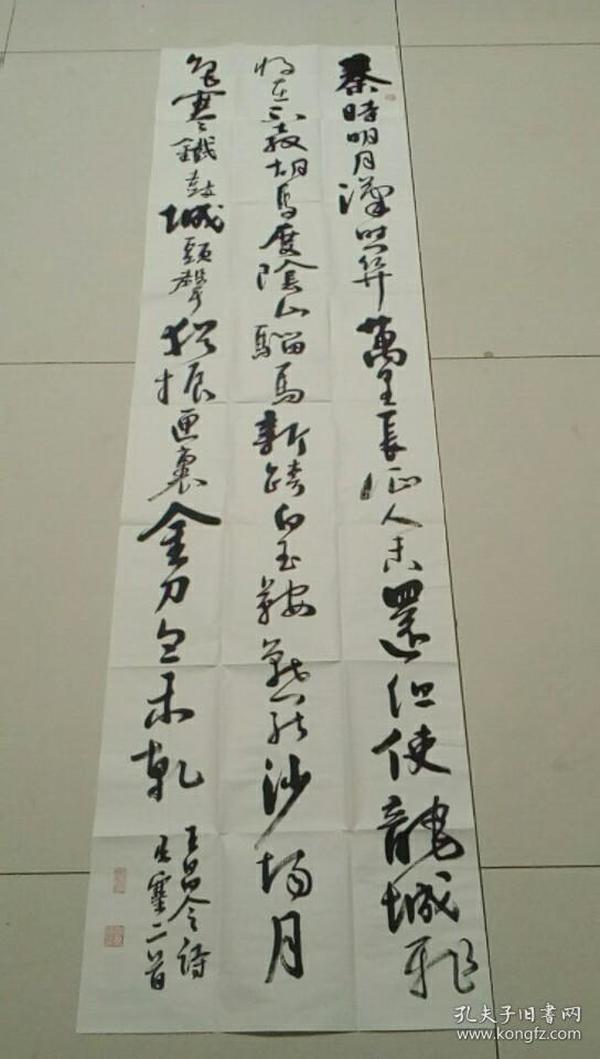 秦時明月漢時關萬里長征人未還但使龍城飛
將在不教胡馬度陰山騮馬新跨白玉鞍戰罷沙場月
色寒鐵鼓城頭聲猶振匣裏金刀血未乾
王昌令詩
出塞二首
孔夫子旧书网
www.kongfz.com